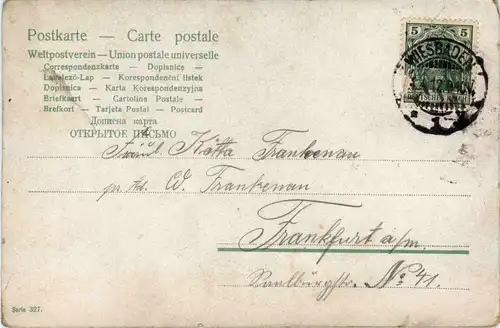 Postkarte — Carte postale
Weltpostverein — Union postale universelle
Correspondenzkarte — Dopisnice —
Levelező-Lap — Korespondenční lístek
Dopisnica — Karta Korespondenzyjna
Briefkaart — Cartolina Postale —
Brefkort — Tarjeta Postal — Postcard
Дописна карта
ОТКРЫТОЕ ПИСЬМО
5 5
WIESBADEN
DEUTSCHES REICH
1
Fräul. Frankenau
W. Frankenau
Frankfurt a/m.
Saalburgstr. No 41.
Serie 327.